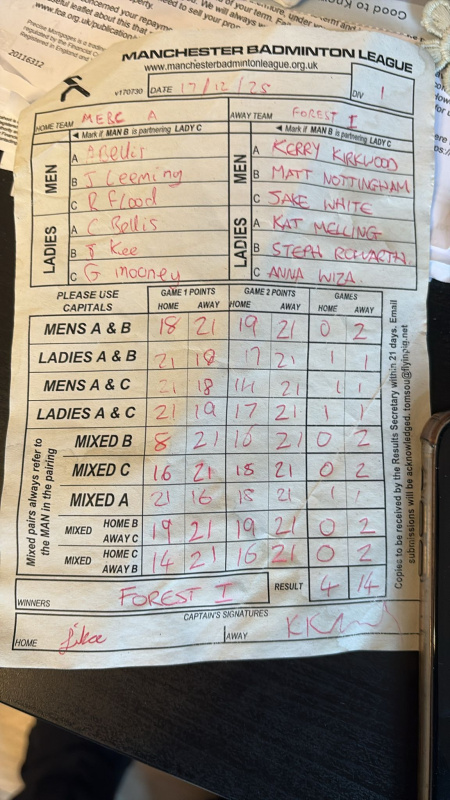 Good to Kno
20116312
MANCHESTER BADMINTON LEAGUE
www.manchesterbadmintonleague.org.uk
v170730 DATE 17/12/25 DIV 1
HOME TEAM MERC A AWAY TEAM FOREST I
◄ Mark if MAN B is partnering LADY C ◄ Mark if MAN B is partnering LADY C
MEN A A Bellis MEN A KERRY KIRKWOOD
B J Leeming B MATT NOTTINGHAM
C R Flood C JAKE WHITE
LADIES A C Bellis LADIES A KAT MELLING
B J Kee B STEPH
C G Mooney C ANNA WIZA
PLEASE USE CAPITALS GAME 1 POINTS GAME 2 POINTS GAMES
HOME AWAY HOME AWAY HOME AWAY
MENS A & B 18 21 19 21 0 2
LADIES A & B 21 18 17 21 1 1
MENS A & C 21 18 14 21 1 1
LADIES A & C 21 19 17 21 1 1
Mixed pairs always refer to the MAN in the pairing
MIXED B 8 21 16 21 0 2
MIXED C 16 21 18 21 0 2
MIXED A 21 16 18 21 1 1
MIXED HOME B AWAY C 19 21 19 21 0 2
MIXED HOME C AWAY B 14 21 16 21 0 2
WINNERS FOREST I RESULT 4 14
CAPTAIN'S SIGNATURES
HOME AWAY
Copies to be received by the Results Secretary within 21 days. Email
submissions will be acknowledged. tomsou@flyinpig.net